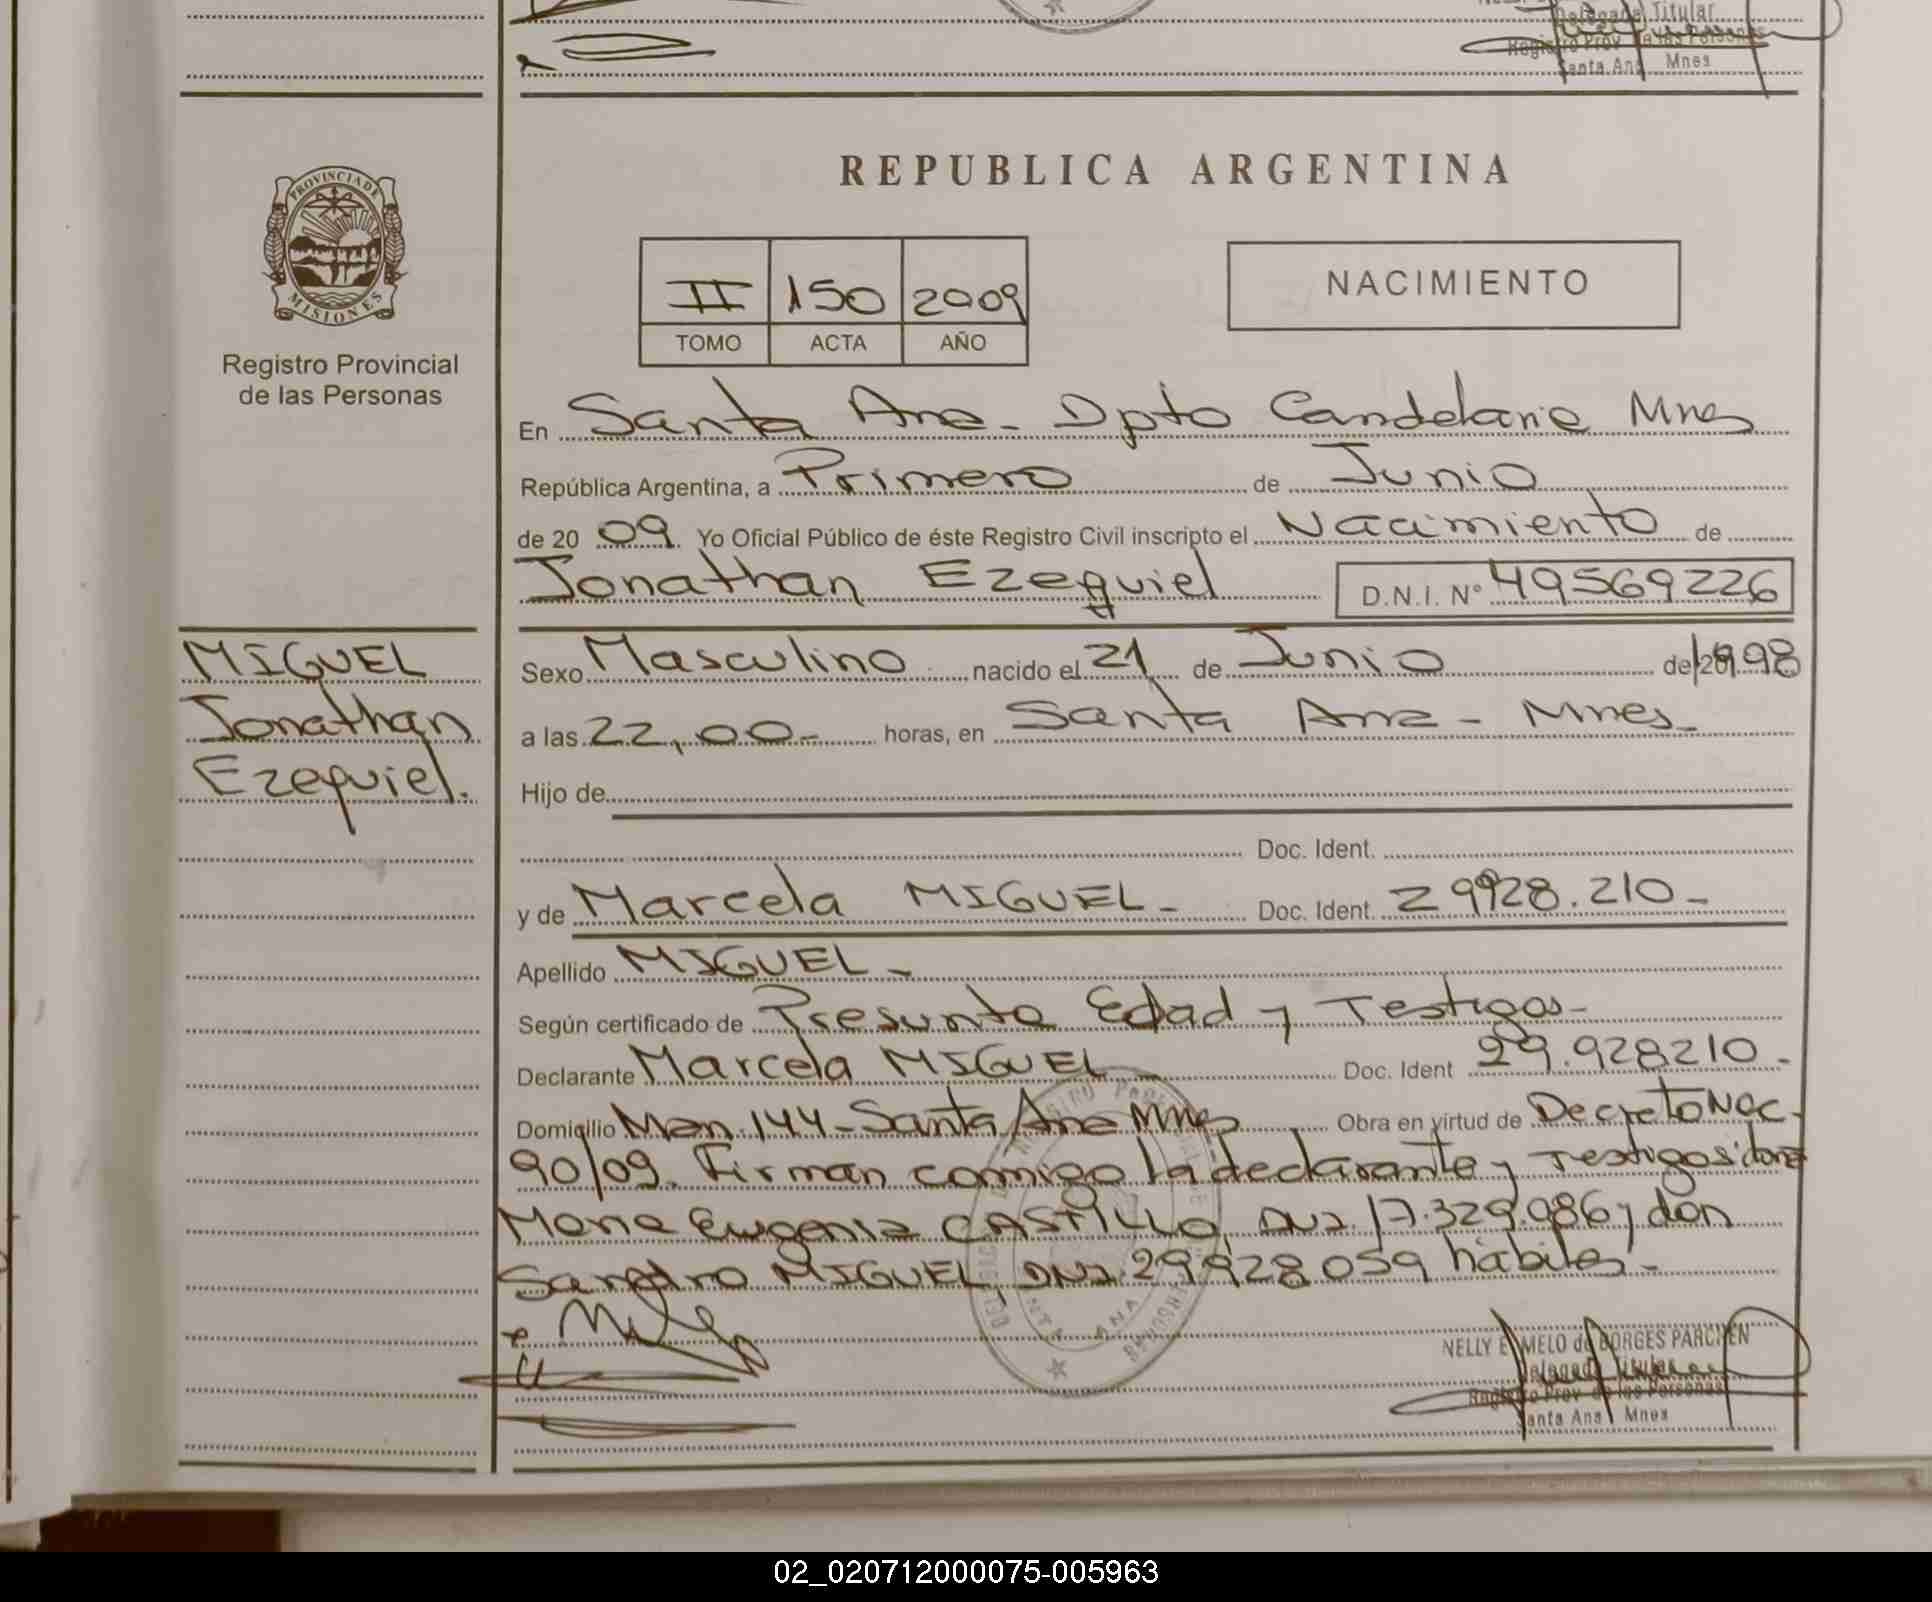 Delegada Titular
Registro Prov. de las Personas
Santa Ana Mnes
PROVINCIA DE
MISIONES
Registro Provincial
de las Personas
REPUBLICA ARGENTINA
II 150 2009
TOMO ACTA AÑO
NACIMIENTO
En Santa Ana - Dpto Candelaria Mnes
República Argentina, a Primero de Junio
de 20 09. Yo Oficial Público de éste Registro Civil inscripto el Nacimiento de
Jonathan Ezequiel D.N.I. N° 49569226
MIGUEL
Jonathan
Ezequiel.
Sexo Masculino nacido el 21 de Junio de 1998
a las 22,00- horas, en Santa Ana - Mnes-
Hijo de
Doc. Ident.
y de Marcela MIGUEL- Doc. Ident. 29928.210-
Apellido MIGUEL-
Según certificado de Presunta Edad y Testigos-
Declarante Marcela MIGUEL Doc. Ident 29.928210-
Domicilio Man. 144- Santa Ana Mnes Obra en virtud de Decreto Nac.
90/09. Firman conmigo la declarante y Testigos doña
Maria Eugenia CASTILLO DNI. 17.329.986 y don
Sandro MIGUEL, DNI. 29928059 hábiles-
NELLY E. MELO de BORGES PARCHEN
Delegada Titular
Registro Prov. de las Personas
Santa Ana Mnes
02_020712000075-005963